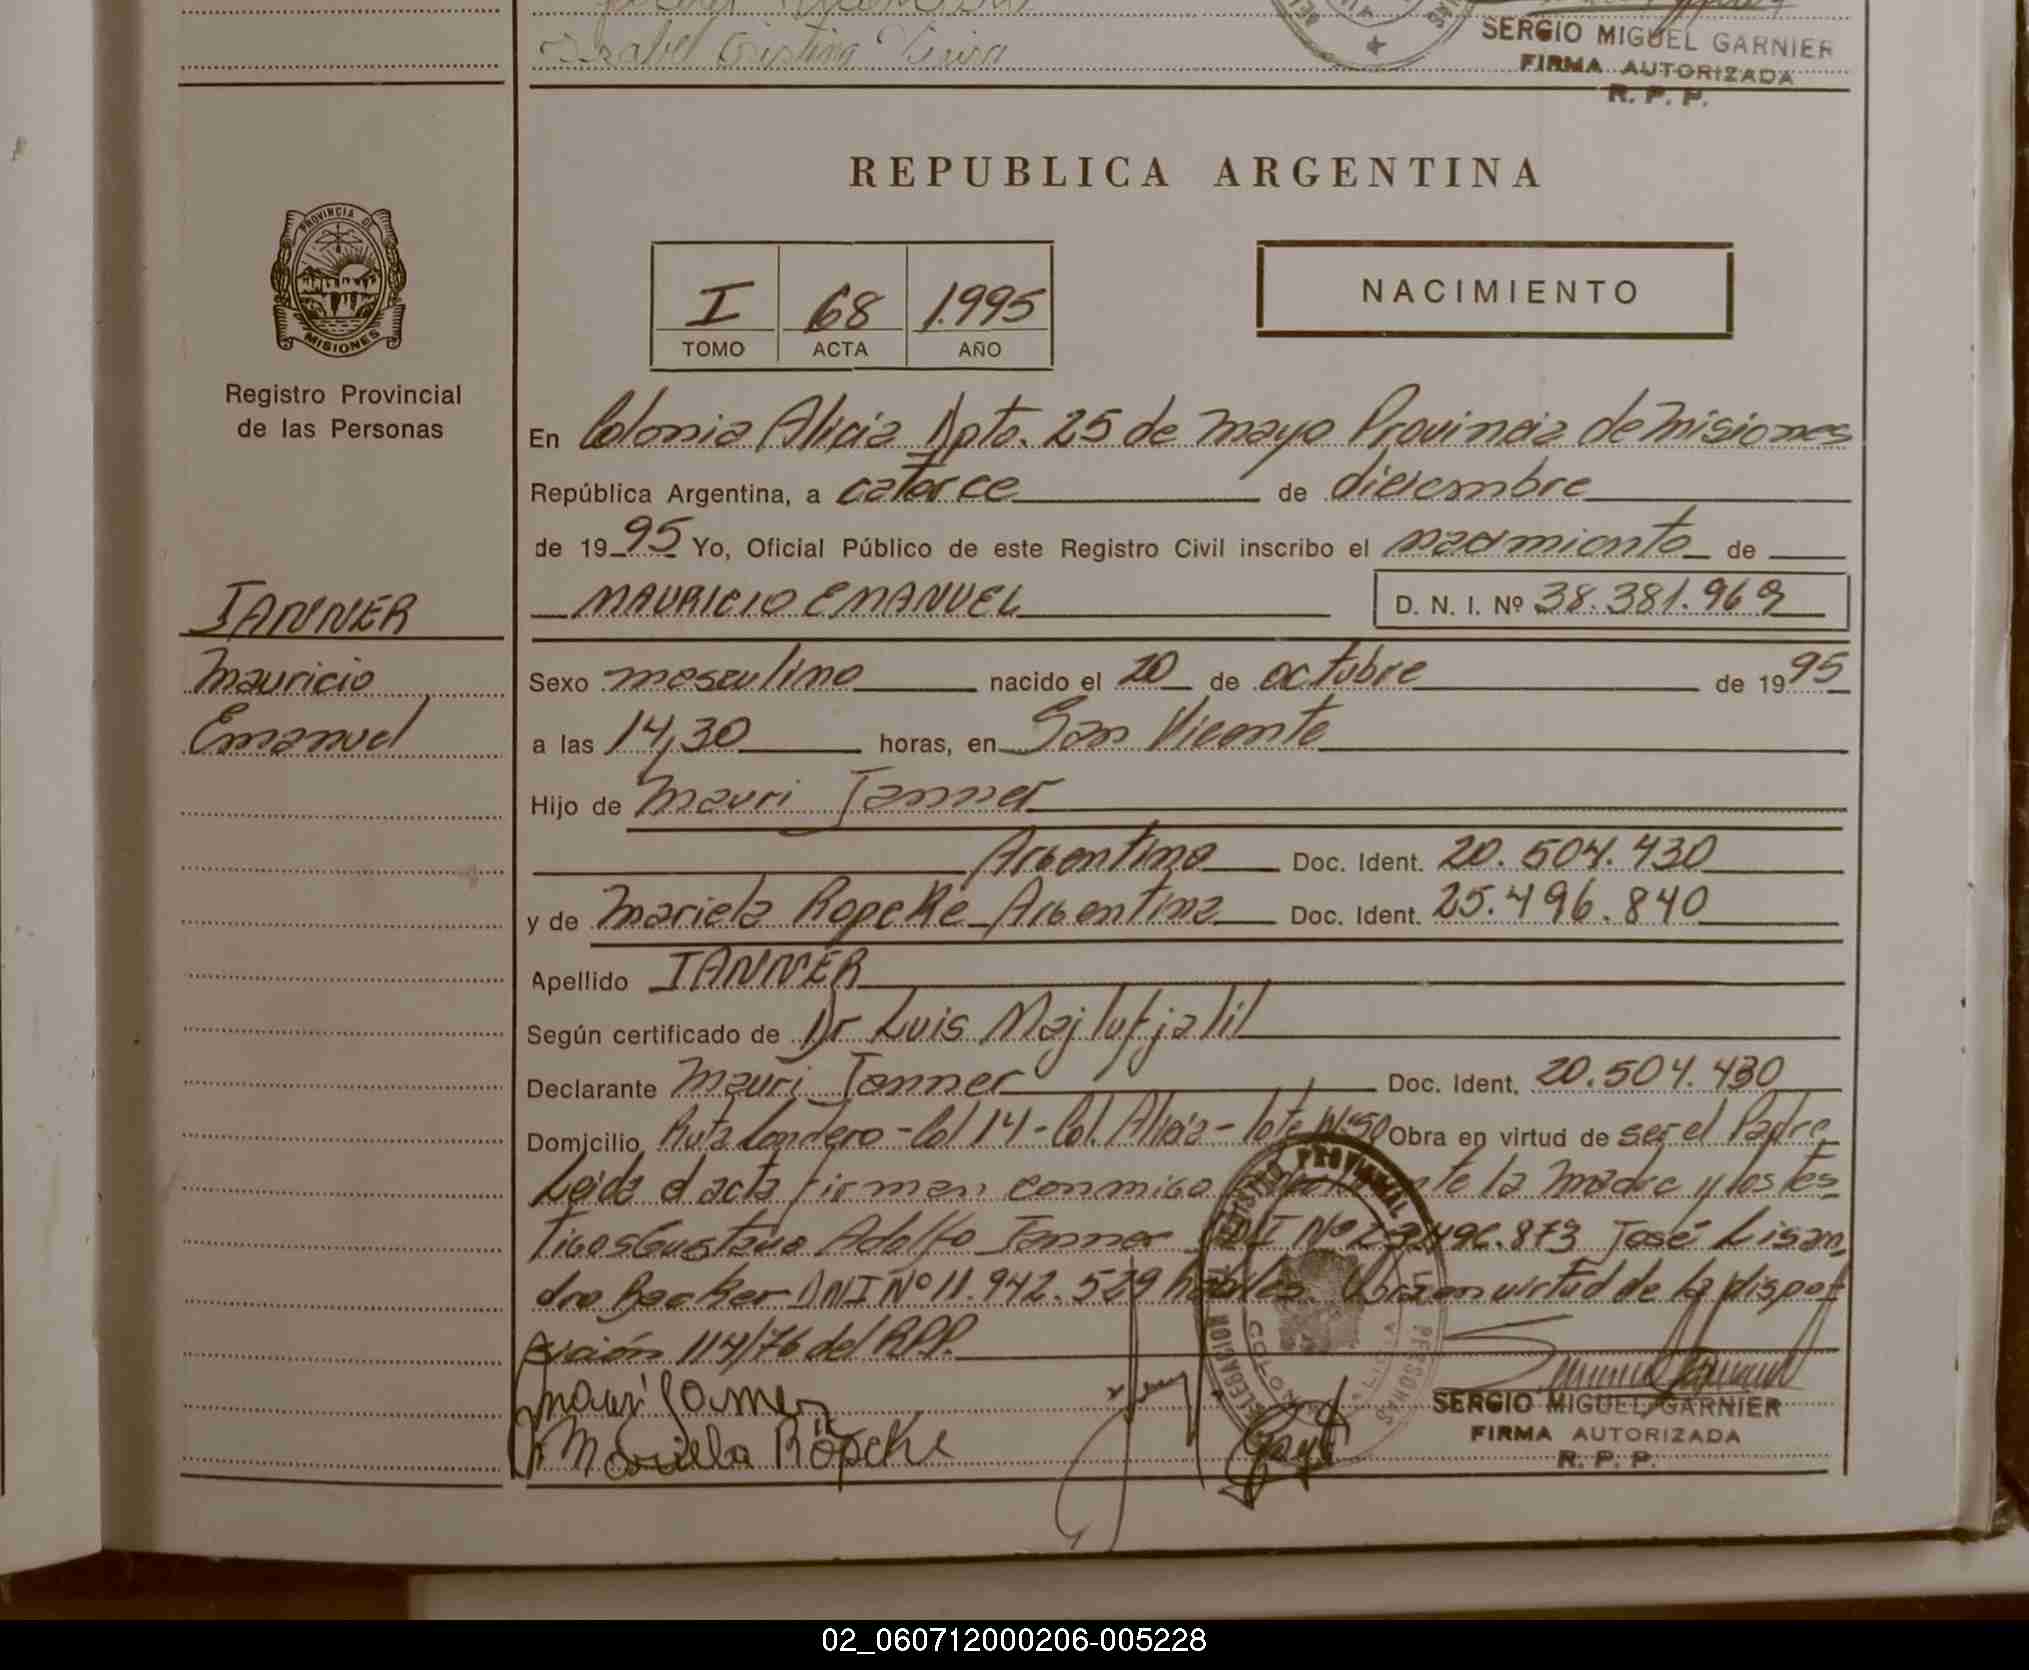 Isabel Cristina
SERGIO MIGUEL GARNIER
FIRMA AUTORIZADA
R. P. P.
REPUBLICA ARGENTINA
PROVINCIA DE
MISIONES
I 68 1.995
TOMO ACTA AÑO
NACIMIENTO
Registro Provincial
de las Personas
En Colonia Alicia Dpto. 25 de mayo Provincia de misiones
República Argentina, a catorce de diciembre
de 1995 Yo, Oficial Público de este Registro Civil inscribo el nacimiento de
MAURICIO EMANUEL D. N. I. Nº 38.381.969
TANNER
Mauricio
Emanuel
Sexo masculino nacido el 20 de octubre de 1995
a las 14,30 horas, en San Vicente
Hijo de Mauri Tanner
Argentino Doc. Ident. 20.504.430
y de Mariela Ropcke Argentina Doc. Ident. 25.496.840
Apellido TANNER
Según certificado de Dr Luis Majluf jalil
Declarante Mauri Tanner Doc. Ident. 20.504.430
Domicilio Ruta Londero - Col 14 - Col. Alicia - lote Nº 50 Obra en virtud de ser el Padre
Leida el acta firman conmigo la madre y los tes
tigos Gustavo Adolfo Tanner DNI Nº José Lisan
dro Backer DNI Nº 11.942.529 habiles. Obra en virtud de la dispo
sición 114/76 del RPP.
REGISTRO PROVINCIAL DE LAS PERSONAS
DELEGACION
COLONIA ALICIA
Mauri Tanner
Mariela Röpcke
SERGIO MIGUEL GARNIER
FIRMA AUTORIZADA
R. P. P.
02_060712000206-005228